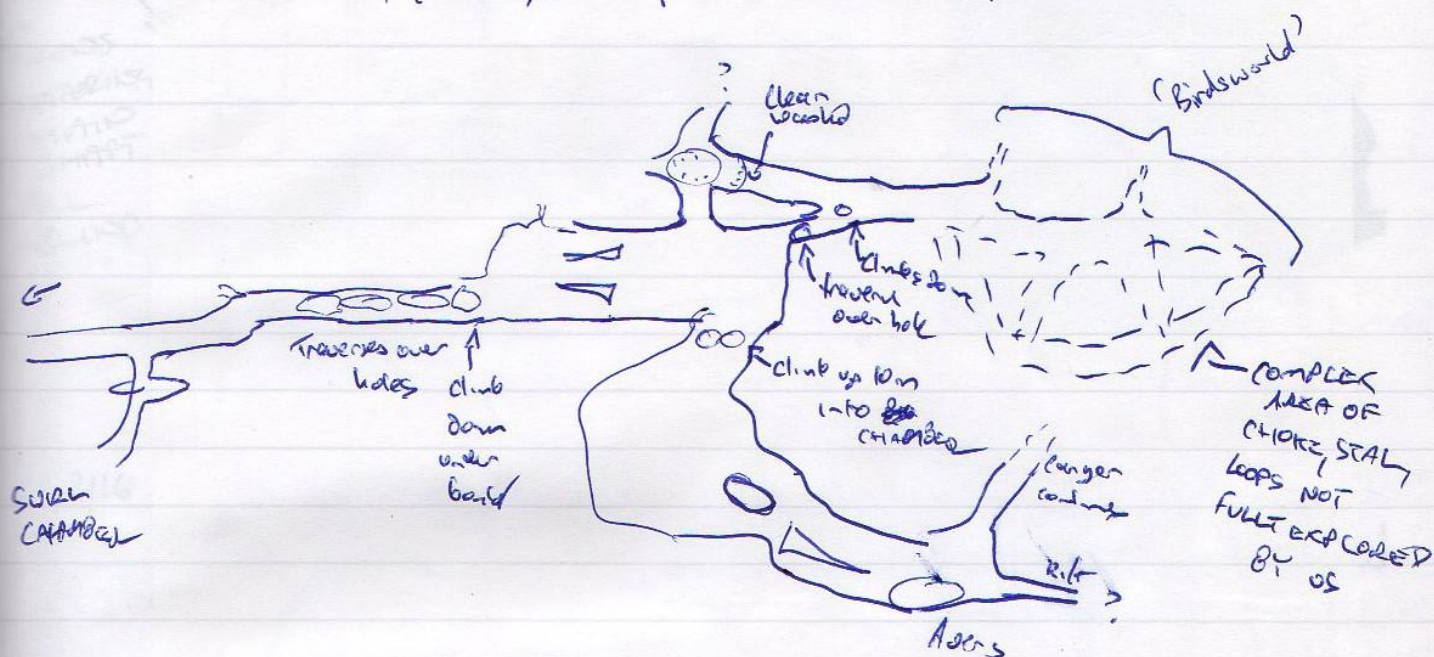 'Birdsworld'
?
Clean
washed
Climbs down
traverse
over hole
Traverses over
holes
Climb
down
under
Climb up 10m
into
CHAMBER
COMPLEX
AREA OF
CHOKE,
LOOPS NOT
FULLY EXPLORED
BY US
CHAMBER
Larger
continues
Rift
?